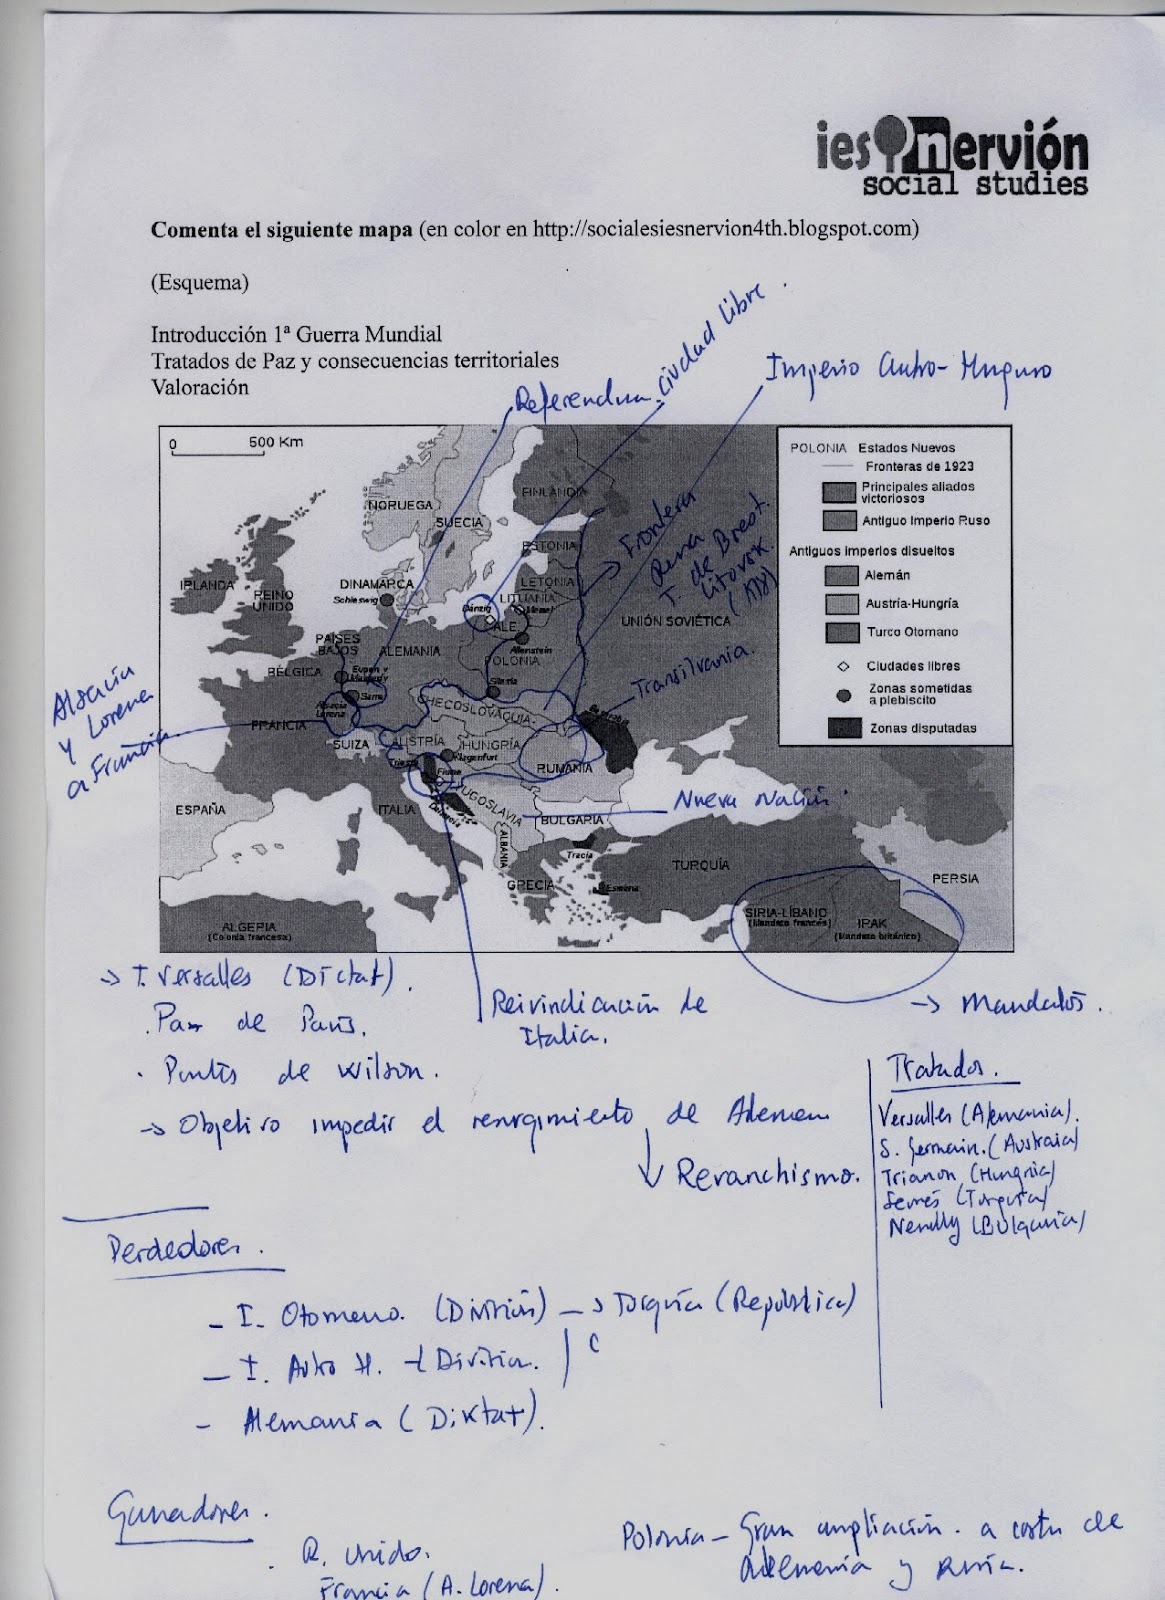 ies nervión
social studies
Comenta el siguiente mapa (en color en http://socialesiesnervion4th.blogspot.com)
(Esquema)
Introducción 1ª Guerra Mundial
Tratados de Paz y consecuencias territoriales
Valoración
Referendum
Ciudad libre.
Imperio Autro-Hunguro
0 500 Km
POLONIA Estados Nuevos
Fronteras de 1923
Principales aliados
victoriosos
Antiguo Imperio Ruso
Antiguos imperios disueltos
Alemán
Austria-Hungría
Turco Otomano
Ciudades libres
Zonas sometidas
a plebiscito
Zonas disputadas
NORUEGA
SUECIA
FINLANDIA
ESTONIA
LETONIA
LITUANIA
IRLANDA
REINO
UNIDO
DINAMARCA
Schleswig
Dánzig
Memel
ALE.
Allenstein
UNIÓN SOVIÉTICA
PAISES
BAJOS
ALEMANIA
POLONIA
BÉLGICA
Eupen y
Malmedy
Sarre
Silesia
Alsacia
Lorena
CHECOSLOVAQUIA
FRANCIA
SUIZA
AUSTRIA
HUNGRÍA
Klagenfurt
Besarabia
RUMANIA
Trieste
Fiume
Dalmacia
YUGOSLAVIA
ESPAÑA
ITALIA
BULGARIA
ALBANIA
Tracia
GRECIA
Esmirna
TURQUÍA
PERSIA
SIRIA-LÍBANO
(Mandato francés)
IRAK
(Mandato británico)
ALGERIA
(Colonia francesa)
Frontera
Rusa
T. de Brest.
Litovsk.
(1918)
Transilvania.
Alsacia
y Lorena
a Francia
Nueva Nación.
-> T. Versalles (Dictat).
. Paz de París.
. Puntos de Wilson.
-> Objetivo impedir el resurgimiento de Aleman
Revanchismo.
Reivindicación de
Italia.
-> Mandatos.
Tratados.
Versalles (Alemania).
S. Germain. (Austraia)
Trianon (Hungria)
Sevres (Turquía)
Neully (Bulgaria)
Perdedores.
- I. Otomano. (División) -> Turquía (República)
- I. Autro H. - (División.
- Alemania (Diktat).
Ganadores.
. R. Unido.
Francia (A. Lorena).
Polonia - Gran ampliación. a costa de
Alemania y Rusia.